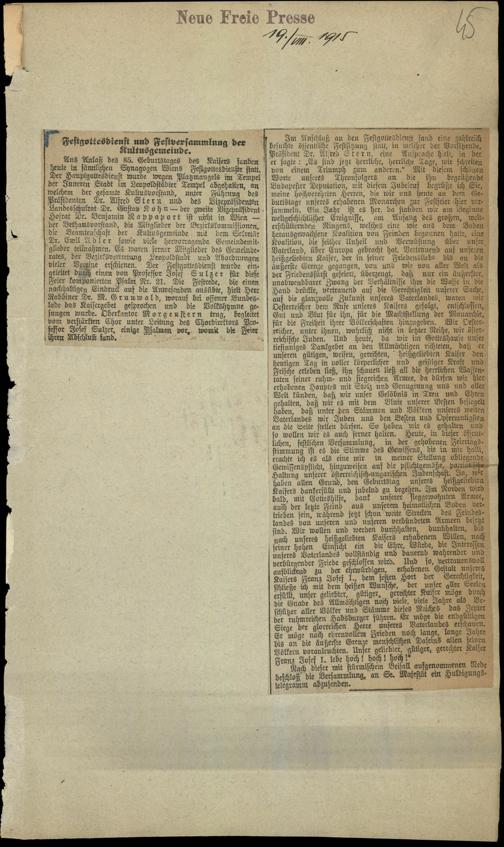 Neue Freie Presse
45
19./VIII. 1915
Festgottesdienst und Festversammlung der
Kultusgemeinde.
Aus Anlaß des 85. Geburtstages des Kaisers fanden
heute in sämtlichen Synagogen Wiens Festgottesdienste statt.
Der Hauptgottesdienst wurde wegen Platzmangels im Tempel
der Inneren Stadt im Leopoldstädter Tempel abgehalten, an
welchem der gesamte Kultusvorstand, unter Führung des
Präsidenten Dr. Alfred Stern und des Vizepräsidenten
Landesschulrat Dr. Gustav Kohn — der zweite Vizepräsident
Hofrat Dr. Benjamin Rappaport ist nicht in Wien —
der Bethausvorstand, die Mitglieder der Bezirkskommissionen,
die Beamtenschaft der Kultusgemeinde mit dem Sekretär
Dr. Emil Adler sowie viele hervorragende Gemeindemit-
glieder teilnahmen. Es waren ferner Mitglieder des Gemeinde-
rates, der Bezirksvertretung Leopoldstadt und Abordnungen
vieler Vereine erschienen. Der Festgottesdienst wurde ein-
geleitet durch den von Professor Josef Sulzer für diese
Feier komponierten Psalm Nr. 21. Die Festrede, die einen
nachhaltigen Eindruck auf die Anwesenden ausübte, hielt Herr
Rabbiner Dr. M. Grunwald, worauf bei offener Bundes-
lade das Kaisergebet gesprochen und die Volkshymne ge-
sungen wurde. Oberkantor Morgenstern trug, begleitet
vom verstärkten Chor unter Leitung des Chordirektors Pro-
fessor Josef Sulzer, einige Psalmen vor, womit die Feier
ihren Abschluß fand.
Im Anschluß an den Festgottesdienst fand eine zahlreich
besuchte öffentliche Festsitzung statt, in welcher der Vorsitzende,
Präsident Dr. Alfred Stern, eine Ansprache hielt, in der
er sagte: „Es sind jetzt herrliche, herrliche Tage, wir schreiten
von einem Triumph zum andern." Mit diesen schönen
Worte unseres Thronfolgers an die ihn begrüßende
Budapester Deputation, mit diesem Jubelruf begrüße ich Sie,
meine hochverehrten Herren, die wir uns heute an dem Ge-
burtstage unseres erhabenen Monarchen zur Festfeier hier ver-
sammeln. Ein Jahr ist es her, da standen wir am Beginne
welthistorischer Ereignisse, am Anfang des großen, welt-
erschütternden Ringens, welches eine wie aus dem Boden
herausgewachsene Koalition von Feinden begonnen hatte, eine
Koalition, die seither Unheil und Verwüstung über unser
Vaterland, über Europa gebracht hat. Vertrauend auf unseren
heißgeliebten Kaiser, der in seiner Friedensliebe bis an die
äußerste Grenze gegangen, von uns wie von aller Welt als
der Friedensfürst gefeiert, überzeugt, daß nur ein äußerster,
unabwendbarer Zwang der Verhältnisse ihm die Waffe in die
Hand drückte, vertrauend auf die Gerechtigkeit unserer Sache,
auf die glanzvolle Zukunft unseres Vaterlandes, waren wir
Oesterreicher dem Rufe unseres Kaisers gefolgt, entschlossen,
Gut und Blut für ihn, für die Machtstellung der Monarchie,
für die Freiheit ihrer Völkerschaften hinzugeben. Wir Oester-
reicher, unter ihnen, wahrlich nicht in letzter Reihe, wir öster-
reichische Juden. Und heute, da wir im Gotteshause unser
tiefinniges Dankgebet an den Allmächtigen richteten, daß er
unseren gütigen, weisen, gerechten, heißgeliebten Kaiser den
heutigen Tag in voller körperlicher und geistiger Kraft und
Frische erleben ließ, ihn schauen ließ all die herrlichen Waffen-
taten seiner ruhm- und siegreichen Armee, da dürfen wir hier
erhobenen Hauptes mit Stolz und Genugtuung uns und aller
Welt künden, daß wir unser Gelöbnis in Treu und Ehren
gehalten, daß wir es mit dem Blute unserer Besten besiegelt
haben, daß unter den Stämmen und Völkern unseres weiten
Vaterlandes wir Juden uns den Besten und Opfermutigsten
an die Seite stellen dürfen. So haben wir es gehalten und
so wollen wir es auch ferner halten. Heute, in dieser öffent-
lichen, festlichen Versammlung, in der gehobenen Feiertags-
stimmung ist es die Stimme des Gewissens, die in mir hallt,
erachte ich es als eine mir in meiner Stellung obliegende
Gewissenspflicht, hinzuweisen auf die pflichtgemäße, patriotische
Haltung unserer österreichisch-ungarischen Judenschaft. Ja, wir
haben allen Grund, den Geburtstag unseres heißgeliebten
Kaisers dankerfüllt und jubelnd zu begehen. Im Norden wird
bald, mit Gotteshilfe, dank unserer sieggewohnten Armee,
auch der letzte Feind aus unserem heimatlichen Boden ver-
trieben sein, während jetzt schon weite Strecken des Feindes-
landes von unseren und unseren verbündeten Armeen besetzt
sind. Wir wollen und werden durchhalten, durchhalten, bis
nach unseres heißgeliebten Kaisers erhabenem Willen, nach
seiner hohen Einsicht ein die Ehre, Würde, die Interessen
unseres Vaterlandes vollständig und dauernd wahrender und
verbürgender Friede geschlossen wird. Und so, vertrauensvoll
aufblickend zu der ehrwürdigen, erhabenen Gestalt unseres
Kaisers Franz Josef I., dem festen Hort der Gerechtigkeit,
schließe ich mit dem heißen Wunsche, der unser aller Seelen
erfüllt, unser geliebter, gütiger, gerechter Kaiser möge durch
die Gnade des Allmächtigen noch viele, viele Jahre als Be-
schützer aller Völker und Stämme dieses Reiches das Zepter
der ruhmreichen Habsburger führen. Er möge die endgültigen
Siege der glorreichen Heere unseres Vaterlandes erschauen.
Er möge nach ehrenvollem Frieden noch lange, lange Jahre
bis an die äußerste Grenze menschlichen Daseins allen seinen
Völkern voranleuchten. Unser geliebter, gütiger, gerechter Kaiser
Franz Josef I. lebe hoch! hoch! hoch!"
Nach dieser mit stürmischem Beifall aufgenommenen Rede
beschloß die Versammlung, an Se. Majestät ein Huldigungs-
telegramm abzusenden.